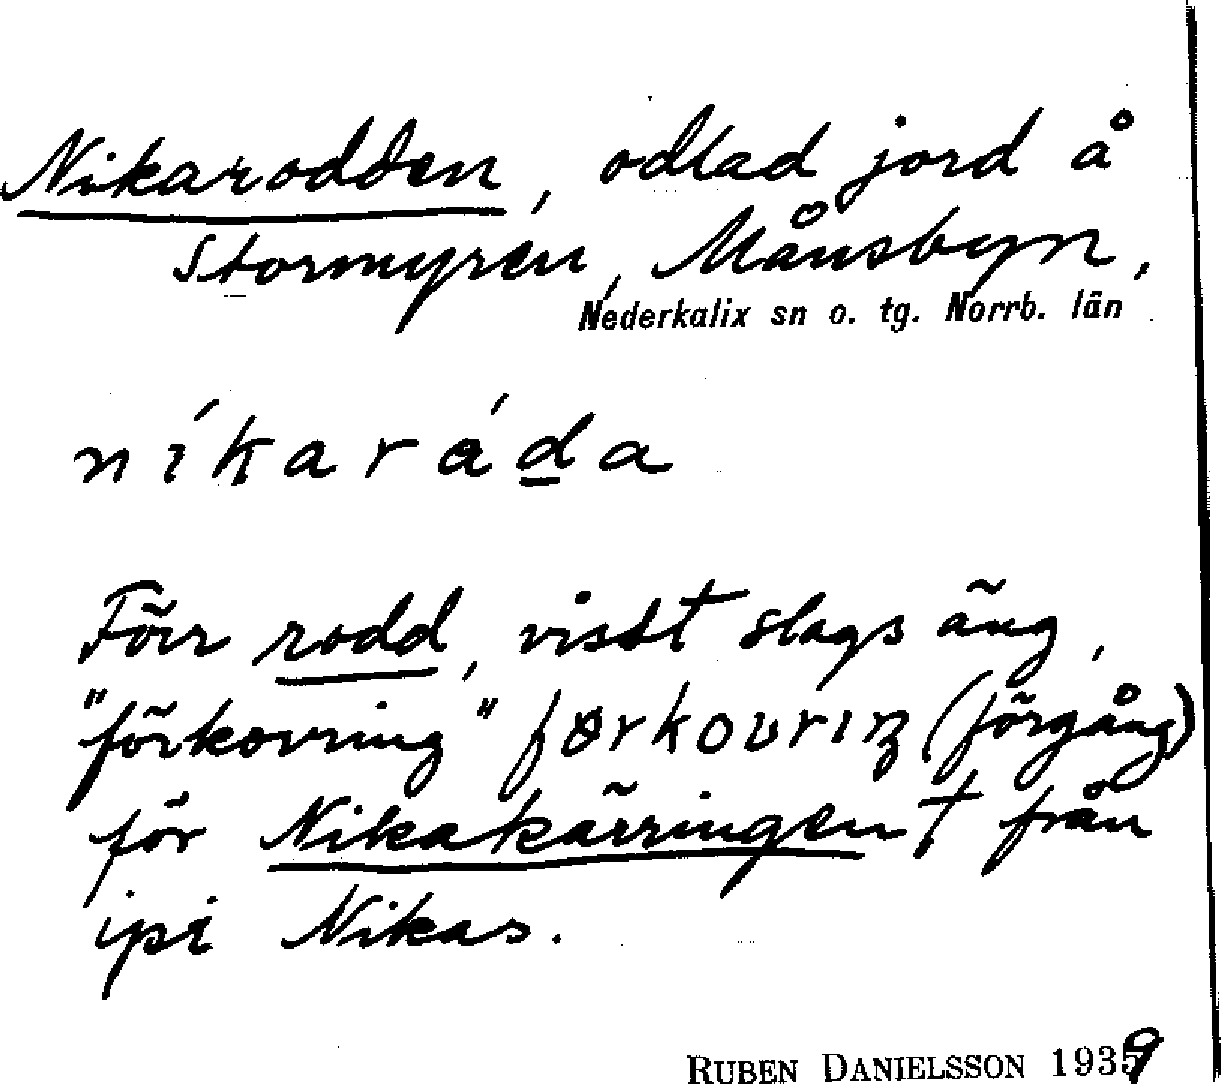 Nikarodden, odlad jord å
Stormyren, Månsbyn,
Nederkalix sn o. tg. Norrb. län
níkaráda
Förr rodd, visst slags äng,
"förkovring" førkovrıŋ (förgång)
för Nikakärringen † från
ipi Nikas.
RUBEN DANIELSSON 1939